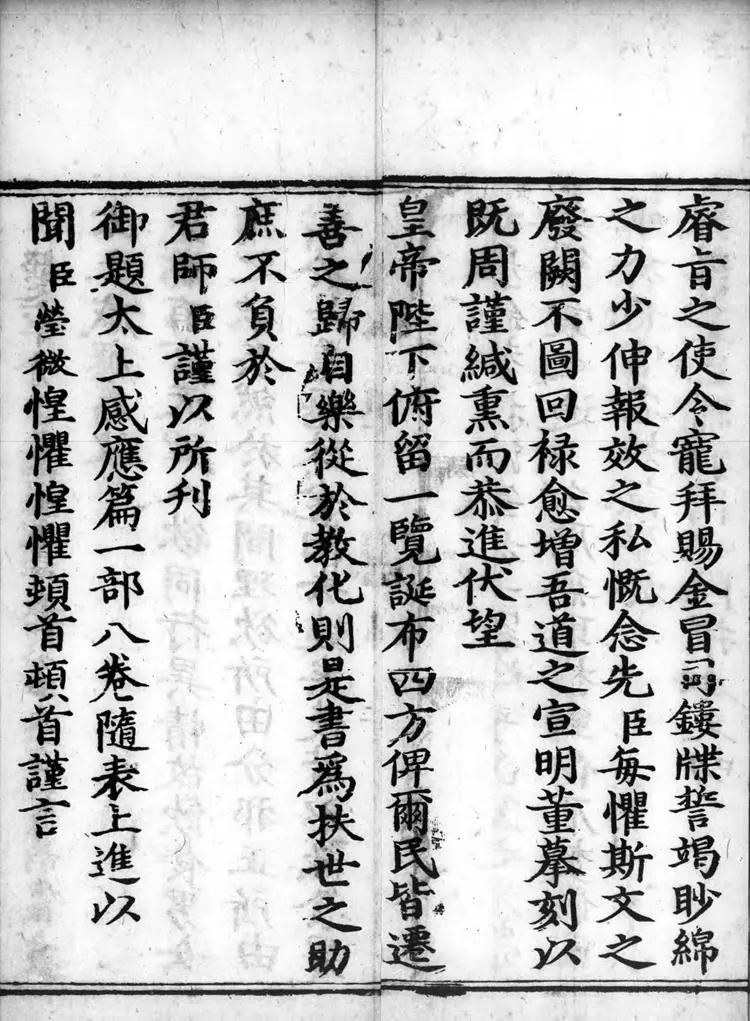 睿旨之使令寵拜賜金冒司鏤牒誓竭眇綿
之力少伸報效之私慨念先臣每懼斯文之
廢闕不圖回祿愈增吾道之宣明董摹刻以
既周謹緘熏而恭進伏望
皇帝陛下俯留一覽誕布四方俾爾民皆遷
善之歸自樂從於教化則是書為扶世之助
庶不負於
君師臣謹以所刊
御題太上感應篇一部八卷隨表上進以
聞臣瑩微惶懼惶懼頓首頓首謹言